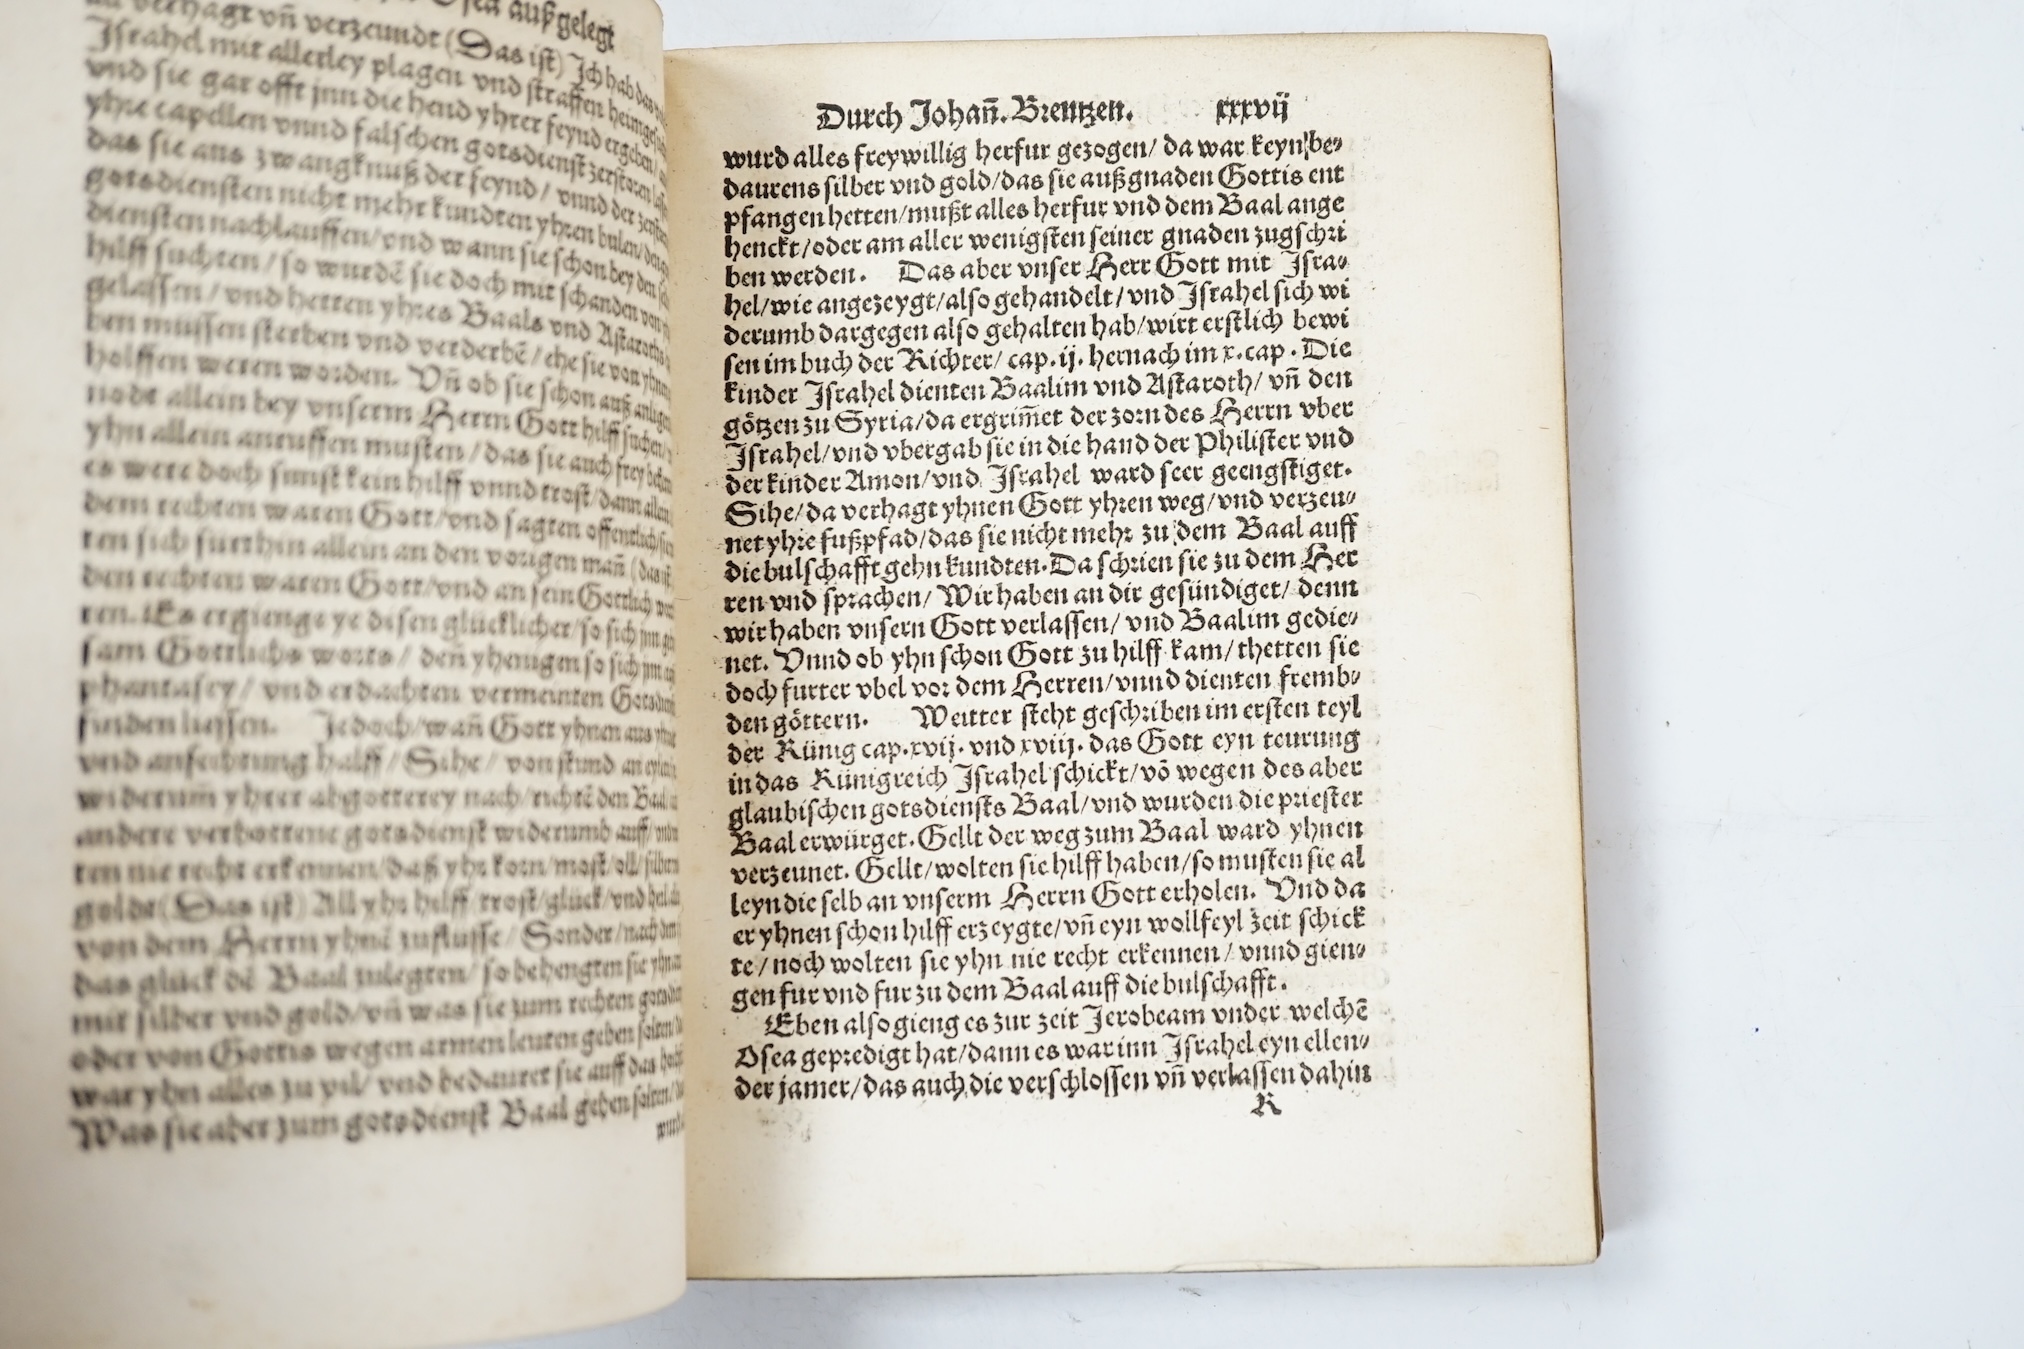 Osea außgelegt
verhagt vñ verzeundt (Das ist) Ich hab das
Israhel mit allerley plagen vnd straffen heimges
vnd sie gar offt jnn die hend yhrer feynd ergeben/
yhre capellen vnnd falschen gotsdienst zerstoren
das sie aus zwangknuß der feynd/ vnnd der
gotsdiensten nicht mehr kundten yhren bulen/
diensten nachlauffen/vnd wann sie schon bey den
hilff suchten/so wurdẽ sie doch mit schanden von
gelassen/vnd hetten yhres Baals vnd Astaroths
ben müssen sterben vnd verderbẽ/ehe sie von yhnen
holffen weren worden. Vñ ob sie schon auß
nodt allein bey vnserm Herrn Gott hilff suchen/
yhn allein anruffen musten/das sie auch frey
es were doch sunst kein hilff vnnd trost/dann allein
dem rechten waren Gott/vnd sagten offentlich/
ten sich furthin allein an den vorigen mañ (das ist
den rechten waren Gott/vnd an sein Gottlich
ren. Es ergienge ye disen glücklicher/so sich jnn
sam Gottlichs worts/ deñ yhenigen so sich jnn
phantasey/ vnd erdachten vermeinten Gotsdienst
finden liessen. Jedoch/wañ Gott yhnen aus
vnd anfechtung halff/Sihe/ von stund an
widerum̃ yhrer abgotterey nach/richtẽ den Baal
andere verbottene gotsdienst widerumb auff/
ten nie recht erkennen/daß yhr korn/most/oll/silber
golde(Das ist) All yhr hilff/trost/glück/vnd heil
von dem Herrn yhnẽ zuflusse/Sonder/nach dem
das glück dẽ Baal zulegten/so behengten sie yhn
mit silber vnd gold/vñ was sie zum rechten gotsdienst
oder von Gottis wegen armen leuten geben solten/
war yhn alles zu vil/ vnd bedauret sie auff das
Was sie aber zum gotsdienst Baal geben solten/
wurd
Durch Johañ. Brentzen. xxxvij
wurd alles freywillig herfur gezogen/ da war keyn be⸗
daurens silber vnd gold/das sie außgnaden Gottis ent
pfangen hetten/mußt alles herfur vnd dem Baal ange
henckt/oder am aller wenigsten seiner gnaden zugschri
ben werden. Das aber vnser Herr Gott mit Isra⸗
hel/wie angezeygt/also gehandelt/vnd Israhel sich wi
derumb dargegen also gehalten hab/wirt erstlich bewi
sen im buch der Richter/ cap. ij. hernach im x. cap. Die
kinder Israhel dienten Baalim vnd Astaroth/ vñ den
götzen zu Syria/da ergrim̃et der zorn des Herrn vber
Israhel/vnd vbergab sie in die hand der Philister vnd
der kinder Amon/vnd Israhel ward seer geengstiget.
Sihe/da verhagt yhnen Gott yhren weg/vnd verzeu⸗
net yhre fußpfad/das sie nicht mehr zu dem Baal auff
die bulschafft gehn kundten. Da schrien sie zu dem Her
ren vnd sprachen/ Wir haben an dir gesündiget/ denn
wir haben vnsern Gott verlassen/ vnd Baalim gedie⸗
net. Vnnd ob yhn schon Gott zu hilff kam/ thetten sie
doch furter vbel vor dem Herren/vnnd dienten fremb⸗
den göttern. Weitter steht geschriben im ersten teyl
der Künig cap. xvij. vnd xviij. das Gott eyn teurung
in das Künigreich Israhel schickt/võ wegen des aber
glaubischen gotsdiensts Baal/vnd wurden die priester
Baal erwürget. Gellt der weg zum Baal ward yhnen
verzeunet. Gellt/wolten sie hilff haben/so musten sie al
leyn die selb an vnserm Herrn Gott erholen. Vnd da
er yhnen schon hilff erzeygte/vñ eyn wollfeyl zeit schick
te/noch wolten sie yhn nie recht erkennen/ vnnd gien⸗
gen fur vnd fur zu dem Baal auff die bulschafft.
Eben also gieng es zur zeit Jerobeam vnder welchẽ
Osea gepredigt hat/dann es war inn Israhel eyn ellen⸗
der jamer/das auch die verschlossen vñ verlassen dahin
K